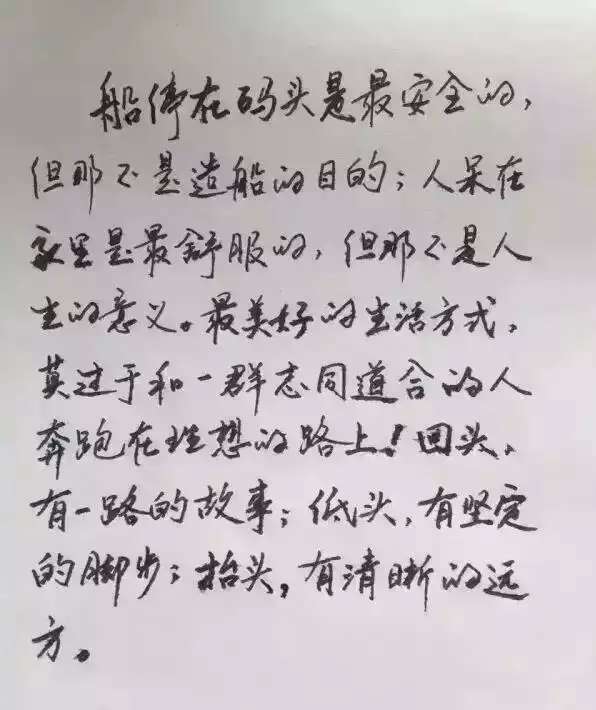 船停在码头是最安全的，
但那不是造船的目的；人呆在
家里是最舒服的，但那不是人
生的意义。最美好的生活方式，
莫过于和一群志同道合的人
奔跑在理想的路上！回头，
有一路的故事；低头，有坚定
的脚步；抬头，有清晰的远
方。